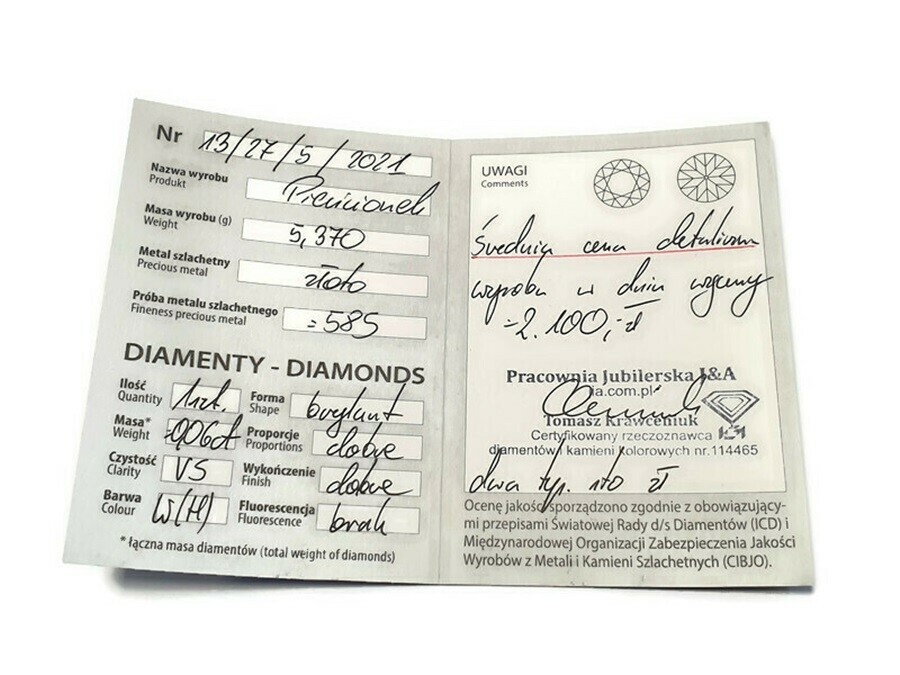 Nr 13/27/5/2021
Nazwa wyrobu
Produkt
Pierścionek
Masa wyrobu (g)
Weight
5,370
Metal szlachetny
Precious metal
złoto
Próba metalu szlachetnego
Fineness precious metal
=585
DIAMENTY - DIAMONDS
Ilość
Quantity
1szt.
Forma
Shape
brylant
Masa*
Weight
=0,06ct
Proporcje
Proportions
dobre
Czystość
Clarity
VS
Wykończenie
Finish
dobre
Barwa
Colour
W(H)
Fluorescencja
Fluorescence
brak
* łączna masa diamentów (total weight of diamonds)
UWAGI
Comments
Średnia cena detaliczna
wyrobu w dniu wyceny
=2.100,- zł
Pracownia Jubilerska J&A
ja.com.pl
Tomasz Krawceniuk
Certyfikowany rzeczoznawca
diamentów i kamieni kolorowych nr.114465
dwa tys. sto zł
Ocenę jakości sporządzono zgodnie z obowiązują-
mi przepisami Światowej Rady d/s Diamentów (ICD) i
Międzynarodowej Organizacji Zabezpieczenia Jakości
Wyrobów z Metali i Kamieni Szlachetnych (CIBJO).